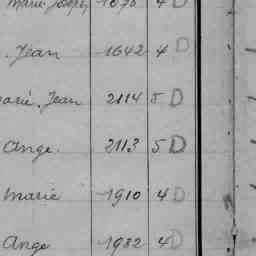 Marie Joseph 1676 4 D
Jean 1642 4 D
Marie Jean 2114 5 D
Ange. 2113 5 D
Marie 1910 4 D
Ange 1932 4 D